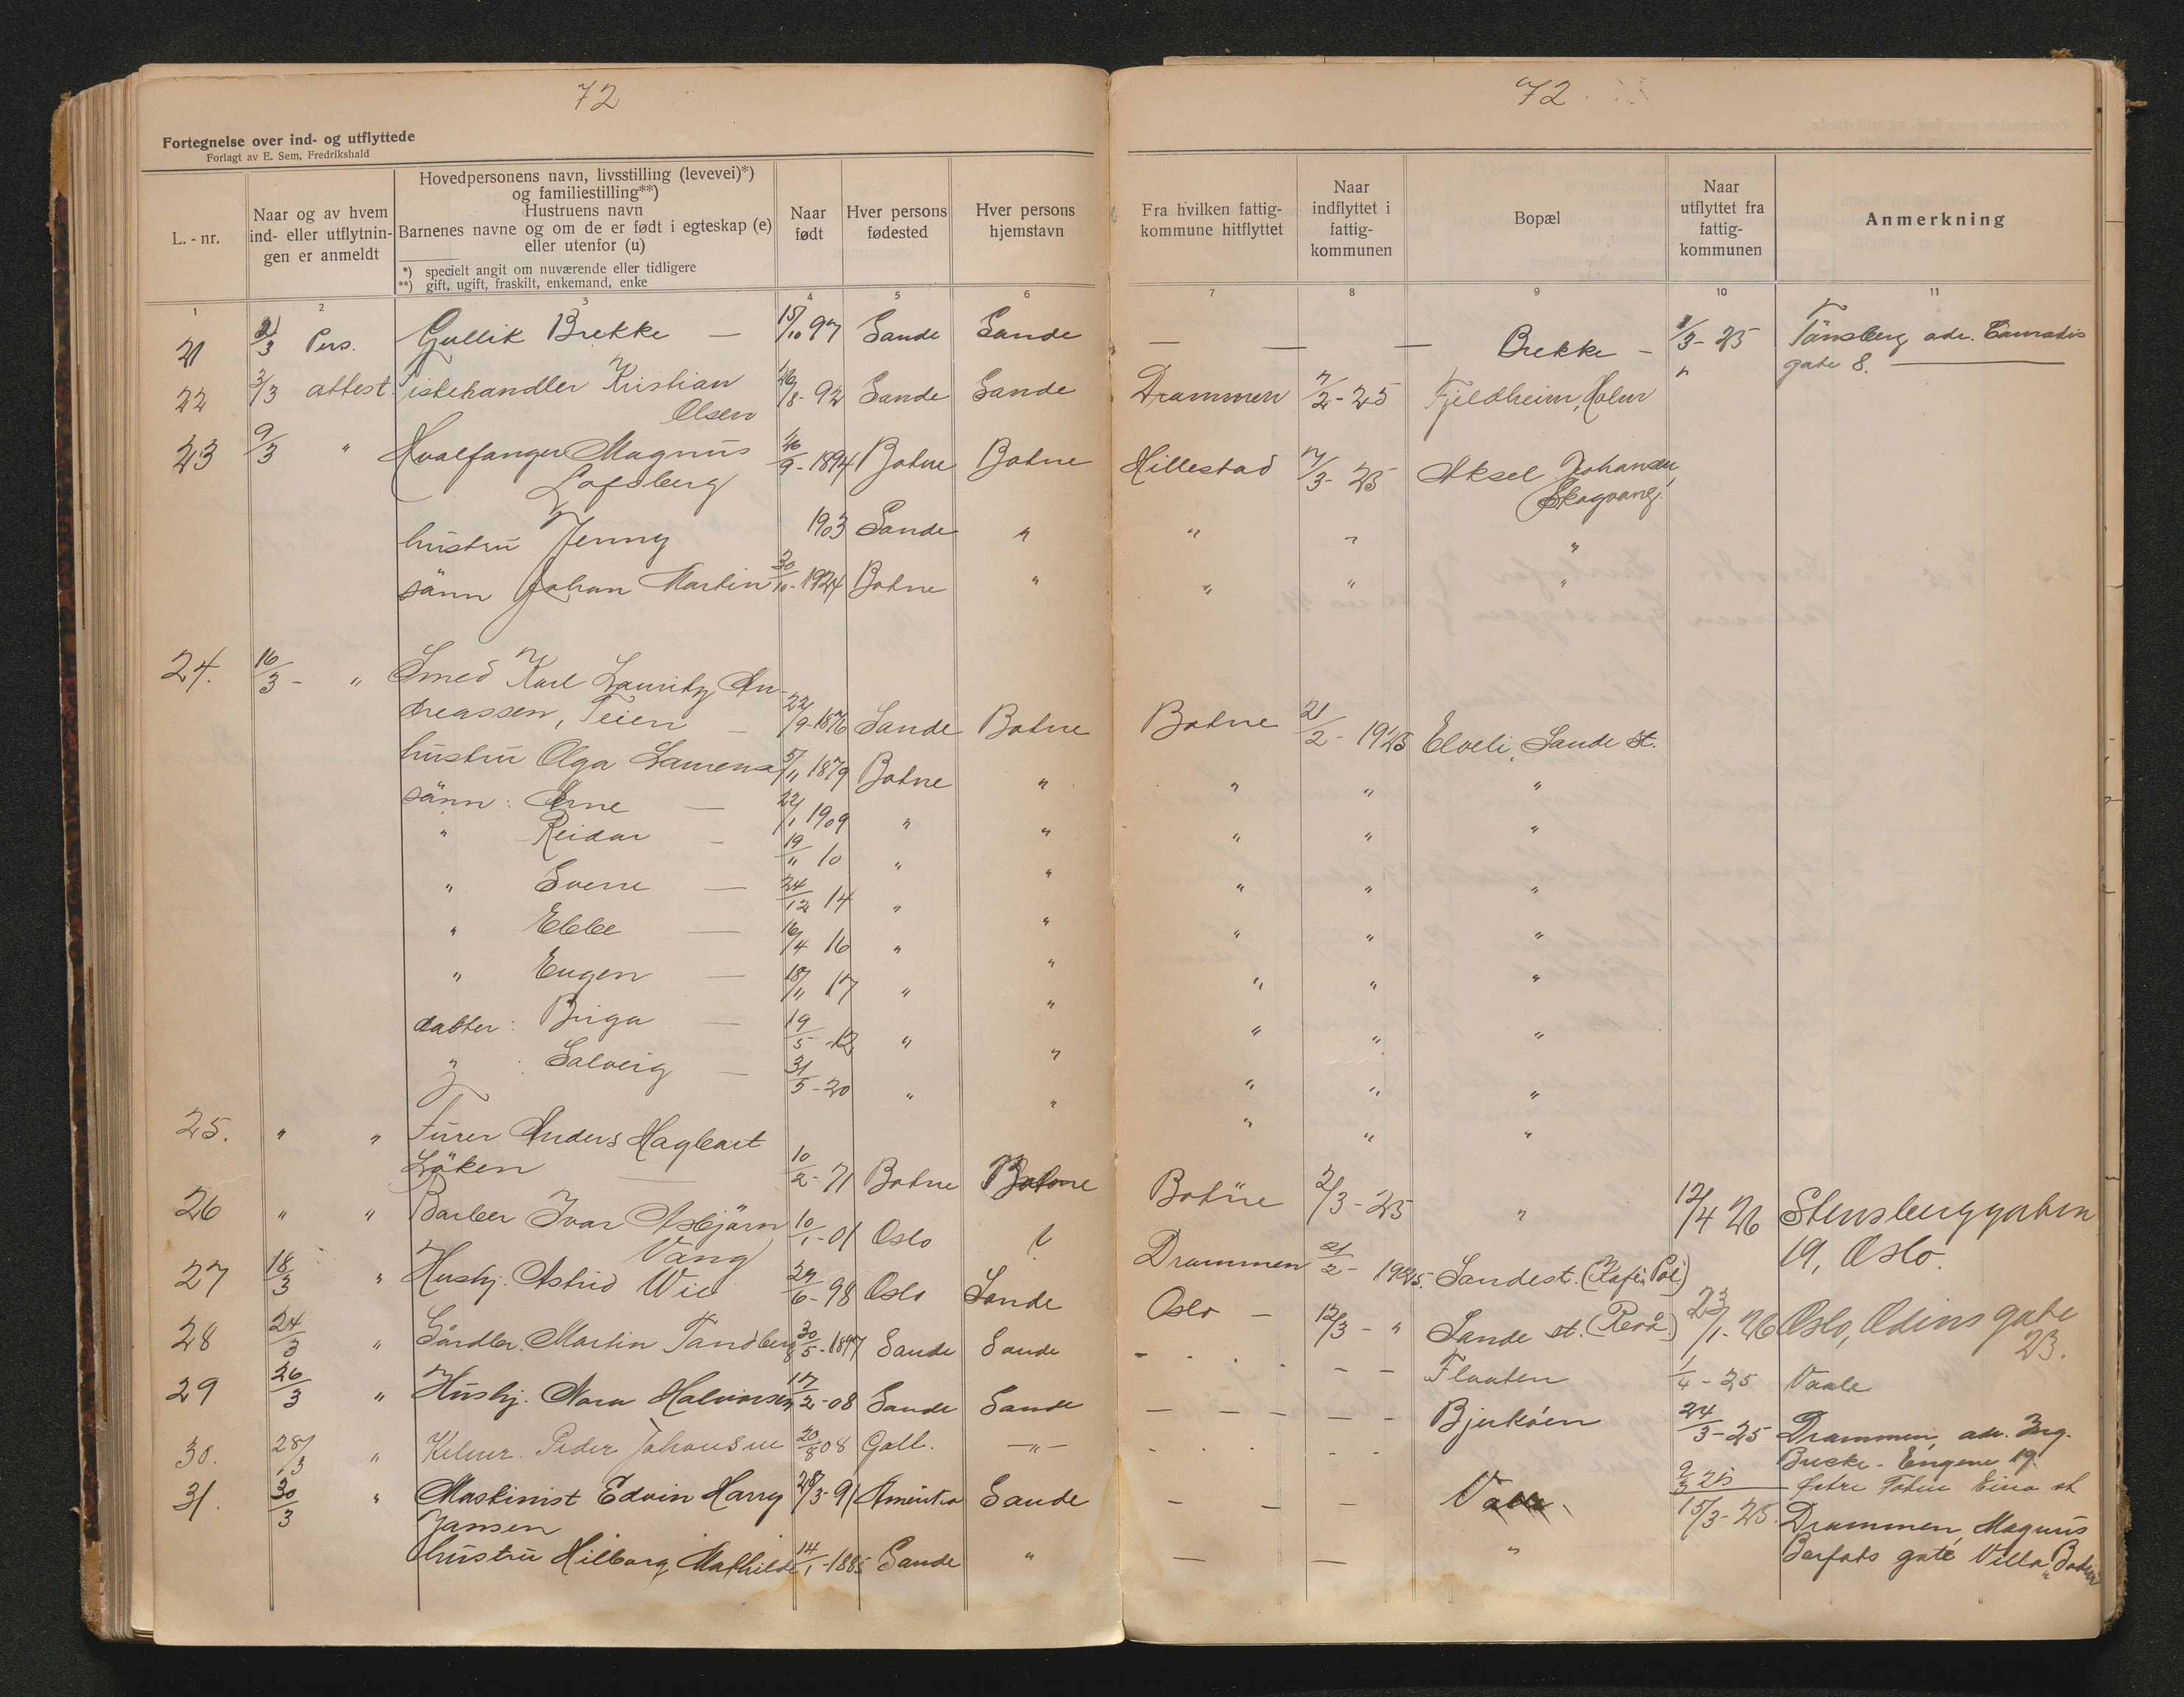 72
Fortegnelse over ind- og utflyttede
Forlagt av E. Sem, Fredrikshald
L. - nr.
Naar og av hvem
ind- eller utflytnin-
gen er anmeldt
Hovedpersonens navn, livsstilling (levevei)*)
og familiestilling**)
Hustruens navn
Barnenes navne og om de er født i egteskap (e)
eller utenfor (u)
*) specielt angit om nuværende eller tidligere
**) gift, ugift, fraskilt, enkemand, enke
Naar
født
Hver persons
fødested
Hver persons
hjemstavn
1 2 3 4 5 6
21 3/3 Pers. Gullik Brekke — 15/10 97 Sande Sande
22 3/3 attest. Fiskehandler Kristian 26/8- 92 Sande Sande
Olsen
23 9/3 " Hvalfanger Magnus 26/9- 1894 Botne Botne
Lofsberg
hustru Jenny 1903 Sande "
sønn Johan Martin 30/10- 1924 Botne "
24. 16/3 - " Smed Karl Lauritz An-
dreassen, Teien — 22/9-1876 Sande Botne
hustru Olga Laurensa 5/11 1879 Botne "
sønn: Arne — 22/1 1909 " "
" Reidar - 19/11 10 " "
" Sverre — 24/12 14 " "
" Ebbe — 16/4 16 " "
" Eugen — 18/11 17 " "
datter: Briga — 19/5 -12 " "
" : Solveig — 31/5-20 " "
25. " " Furer Anders Hagbart
Løken — 10/2- 71 Botne Botne
26 " " Barber Ivar Asbjørn 10/1-01 Oslo ?
Vang
27 18/3 " Hushj. Astrid Wie 29/6-98 Oslo Sande
28 24/3 " Gårdbr. Martin Tandberg 30/5-1897 Sande Sande
29 26/3 " Hushj. Nora Halvorsen 17/2-08 Sande Sande
30. 28/3 " Kelner. Peder Johansen 20/8 08 Goll. — " —
31. 30/3 " Maskinist Edvin Harry 28/3-91 Amerika Sande
Jansen
hustru Hilborg Mathilde 14/1-1885 Sande "
72
Fra hvilken fattig-
kommune hitflyttet
Naar
indflyttet i
fattig-
kommunen
Bopæl
Naar
utflyttet fra
fattig-
kommunen
Anmerkning
7 8 9 10 11
— — — Brekke - 1/3- 25 Tønsberg adr. Conradis
gate 8. —
Drammen 7/2-25 Fjeldheim, Holm "
Hillestad 7/3- 25 Aksel Johansen,
Skogvang.
" " "
" " "
Botne 21/2- 1925 Elveli, Sande st.
" " "
" " "
" " "
" " "
" " "
" " "
" " "
" " "
Botne 2/3-25 " 12/4 26 Stensberggaten
19, Oslo.
Drammen 21/2- 1925. Sande st. (Kafé Pol)
Oslo - 12/3 - " Sande st. (Revå) 23/1-26 Oslo, Odins gate
23.
- - - - - - Flaaten 1/4-25 Vaale
— — — - - Bjerkøen 24/3-25 Drammen, adr. Ing.
Bucke - Engene 19.
2/3 25 Østre Toten Eina st
— — — 15/3-25. Drammen, Magnus
— — " Barfots gate Villa